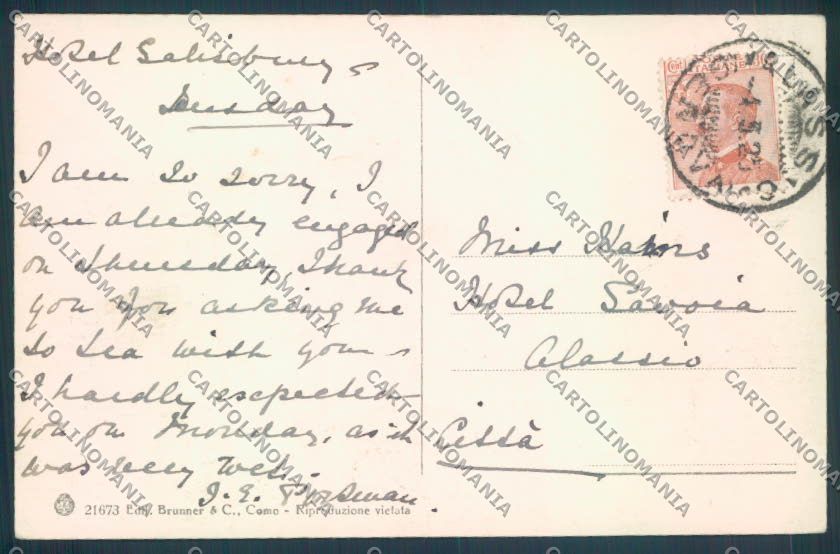 Hotel Salisbury
Tuesday
I am so sorry, I
am already engaged
on Thursday, Thank
you for asking me
to tea with you -
I hardly expected
you on Monday, as it
was very wet.
J. E.
Miss
Hotel Savoia
Alassio
Città
21673 Ediz. Brunner & C., Como - Riproduzione vietata
CARTOLINOMANIA